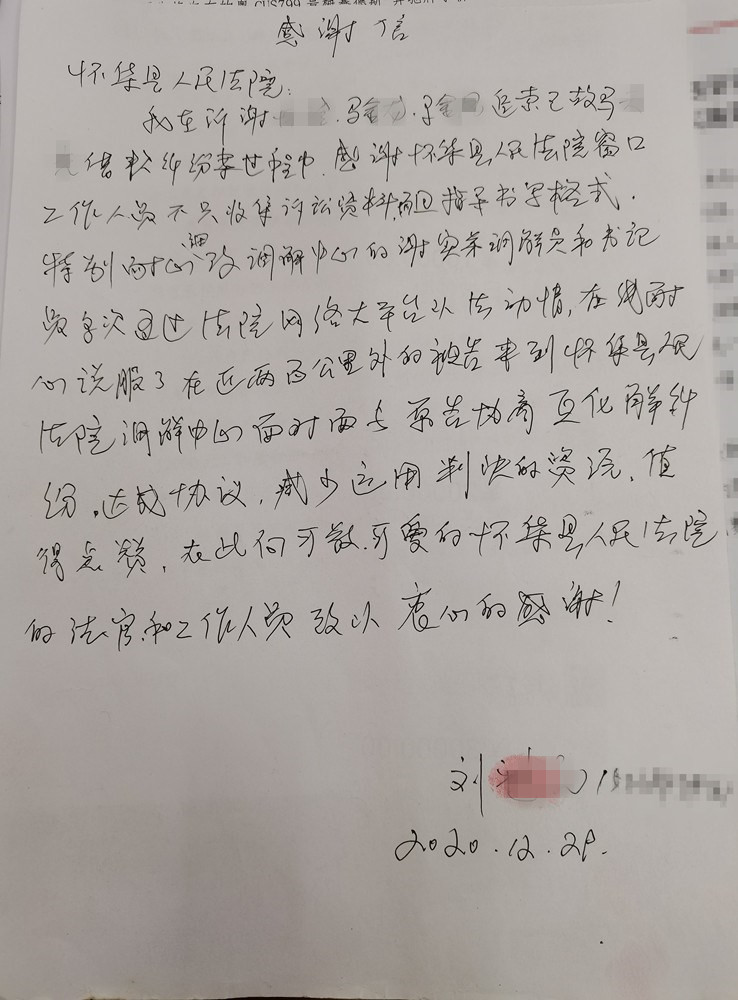 感谢信
怀集县人民法院:
我在诉谢 追索已故马
借款纠纷案过程中,感谢怀集县人民法院窗口
工作人员不只收集诉讼资料,而且指导书写格式.
特别耐心 调解中心的谢实荣调解员和书记
员多次通过法院网络大平台以法动情,在线耐
心说服了在近两百公里外的被告来到怀集县人民
法院调解中心面对面与原告协商互化解纠
纷,达成协议,减少运用判决的资源,值
得点赞,在此向可敬.可爱的怀集县人民法院
的法官和工作人员致以衷心的感谢!
刘
2020.12.28.